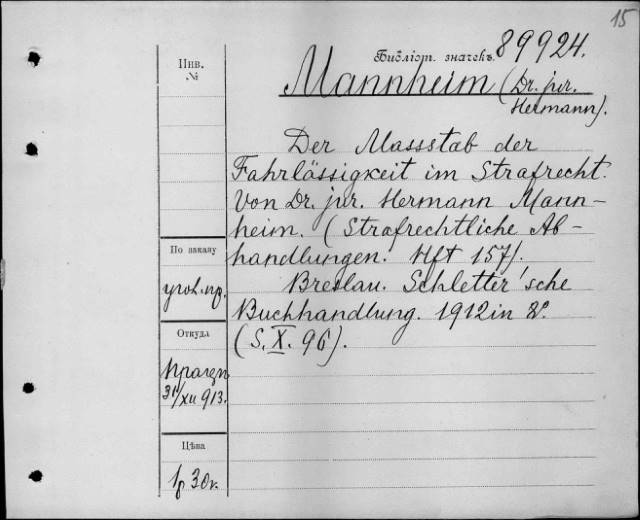 15
Библіот. значекъ 89924.
Инв.
№
Mannheim (Dr. jur.
Hermann).
Der Massstab der
Fahrlässigkeit im Strafrecht.
Von Dr. jur. Hermann Mann-
heim. (Strafrechtliche Ab-
handlungen. Hft 157).
Breslau. Schletter'sche
Buchhandlung. 1912 in 8°.
(S. X. 96).
По заказу
угол. пр.
Откуда
31/XII 913.
Цѣна
1р 30к.